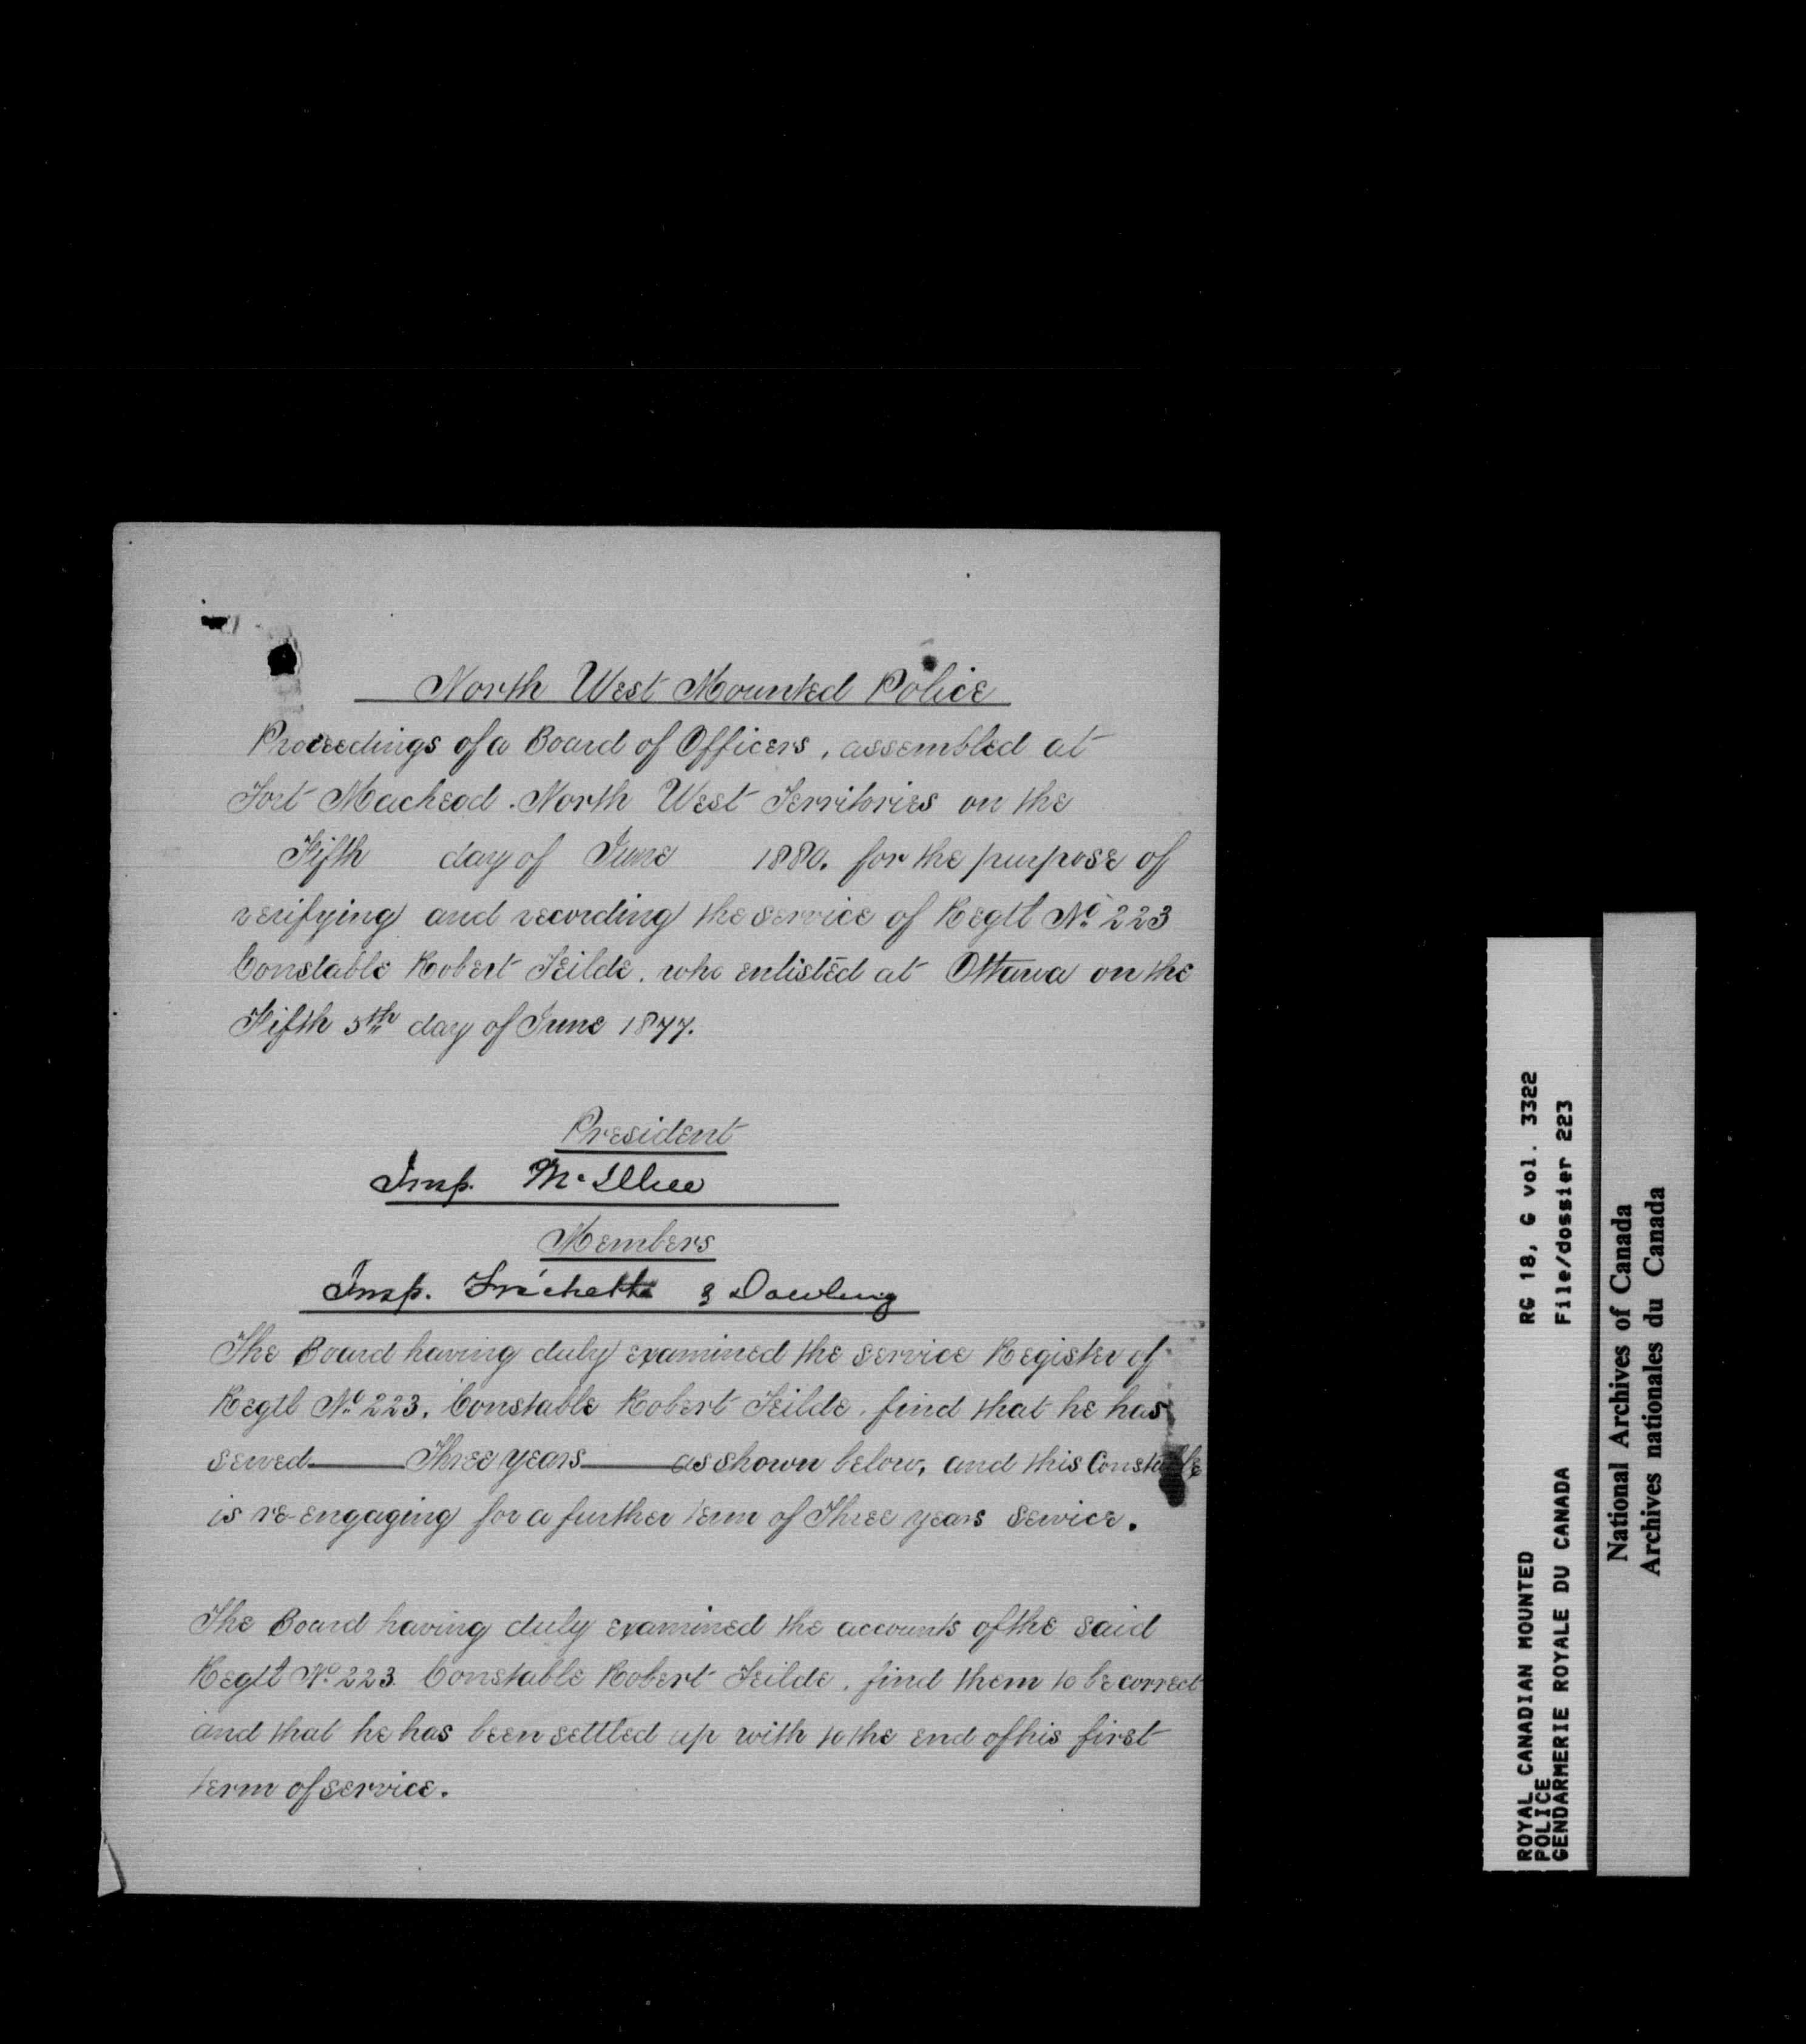 North West Mounted Police
Proceedings of a Board of Officers, assembled at
Fort Macleod. North West Territories on the
Fifth day of June 1880. for the purpose of
verifying and recording the service of Regtl No. 223
Constable Robert Feilde. who enlisted at Ottawa on the
Fifth 5th day of June 1877.
President
Insp. McIllree
Members
Insp. Frechette & Dowling
The Board having duly examined the service Register of
Regtl No. 223. Constable Robert Feilde. find that he has
served Three years as shown below, and this Constable
is re-engaging for a further term of Three years service.
The Board having duly examined the accounts of the said
Regtl No. 223 Constable Robert Feilde. find them to be correct
and that he has been settled up with to the end of his first
term of service.
ROYAL CANADIAN MOUNTED RG 18, G vol. 3322
POLICE
GENDARMERIE ROYALE DU CANADA File/dossier 223
National Archives of Canada
Archives nationales du Canada